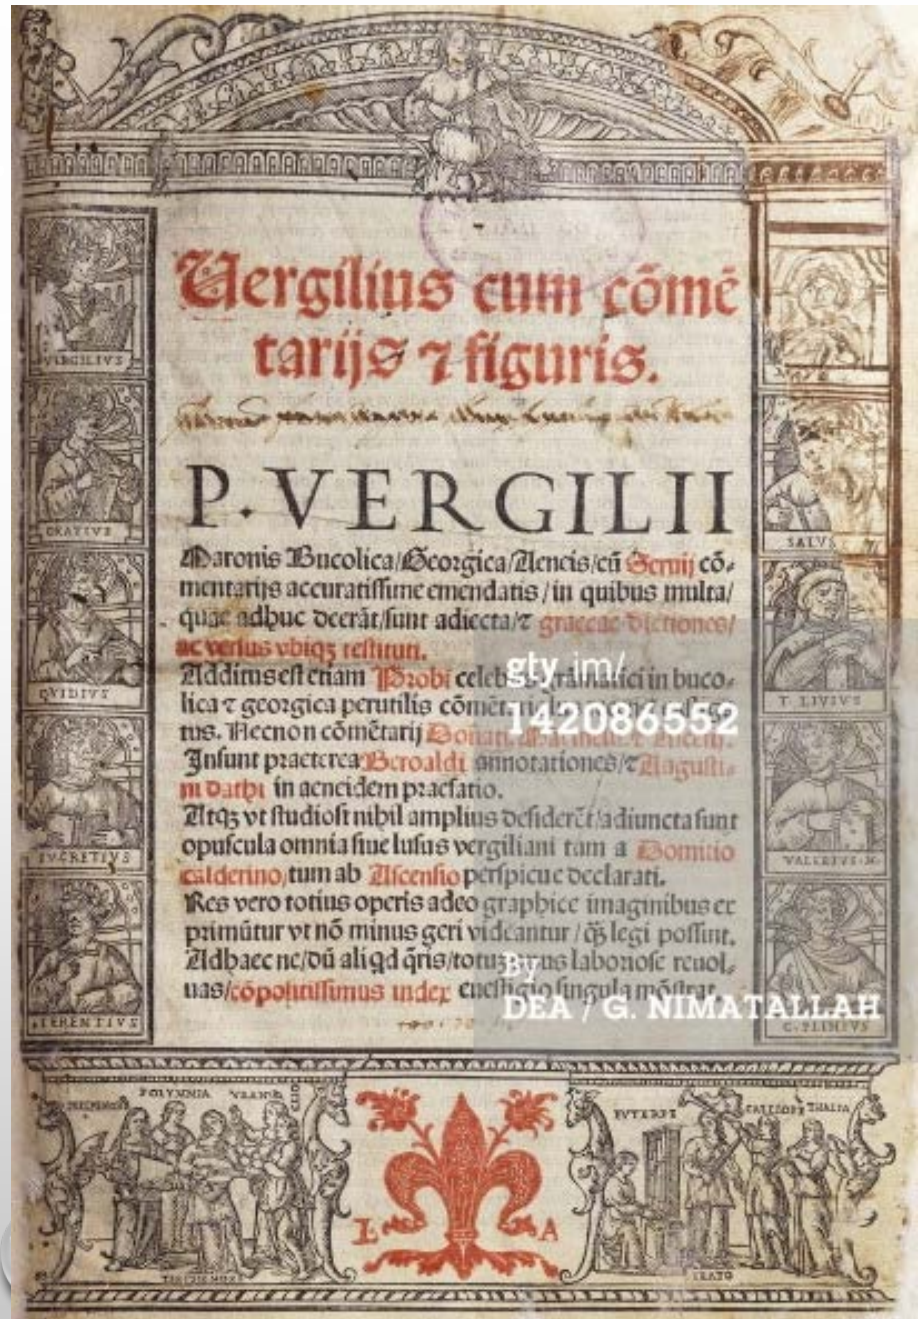 Vergilius cum cōmē
tarijs ⁊ figuris.
P. VERGILII
Maronis Bucolica/Georgica/Aeneis/cū Seruij cō-
mentarijs accuratissime emendatis/in quibus multa/
quae adhuc deerāt/sunt adiecta/⁊ graecae dictiones/
ac versus vbiqȝ restituti.
Additus est etiam Probi celebris grāmatici in buco-
lica ⁊ georgica perutilis cōmētariolus
tus. Necnon cōmētarij Donati,
Insunt praeterea Beroaldi annotationes/⁊ Augusti-
ni dathi in aeneidem praefatio.
Atqȝ vt studiosi nihil amplius desiderēt/adiuncta sunt
opuscula omnia siue lusus vergiliani tam a Domitio
calderino/tum ab Ascensio perspicue declarati.
Res vero totius operis adeo graphice imaginibus ex
primūtur vt nō minus geri videantur/q̄ȝ legi possint.
Adhaec ne/dū aliqd q̄ris/totum opus laboriose reuol-
uas/cōpositissimus index euestigio singula mōstrat.
VIRGILIVS
ORATIVS
OVIDIVS
LVCRETIVS
TERENTIVS
SALVS
T. LIVIVS
VALERIVS·M·
C. PLINIVS
MELPOMENE
POLYMNIA
VRANIA
CLIO
TERPSICHORE
L A
EVTERPE
CALIOPE
THALIA
ERATO
gty.im/
142086552
By
DEA / G. NIMATALLAH